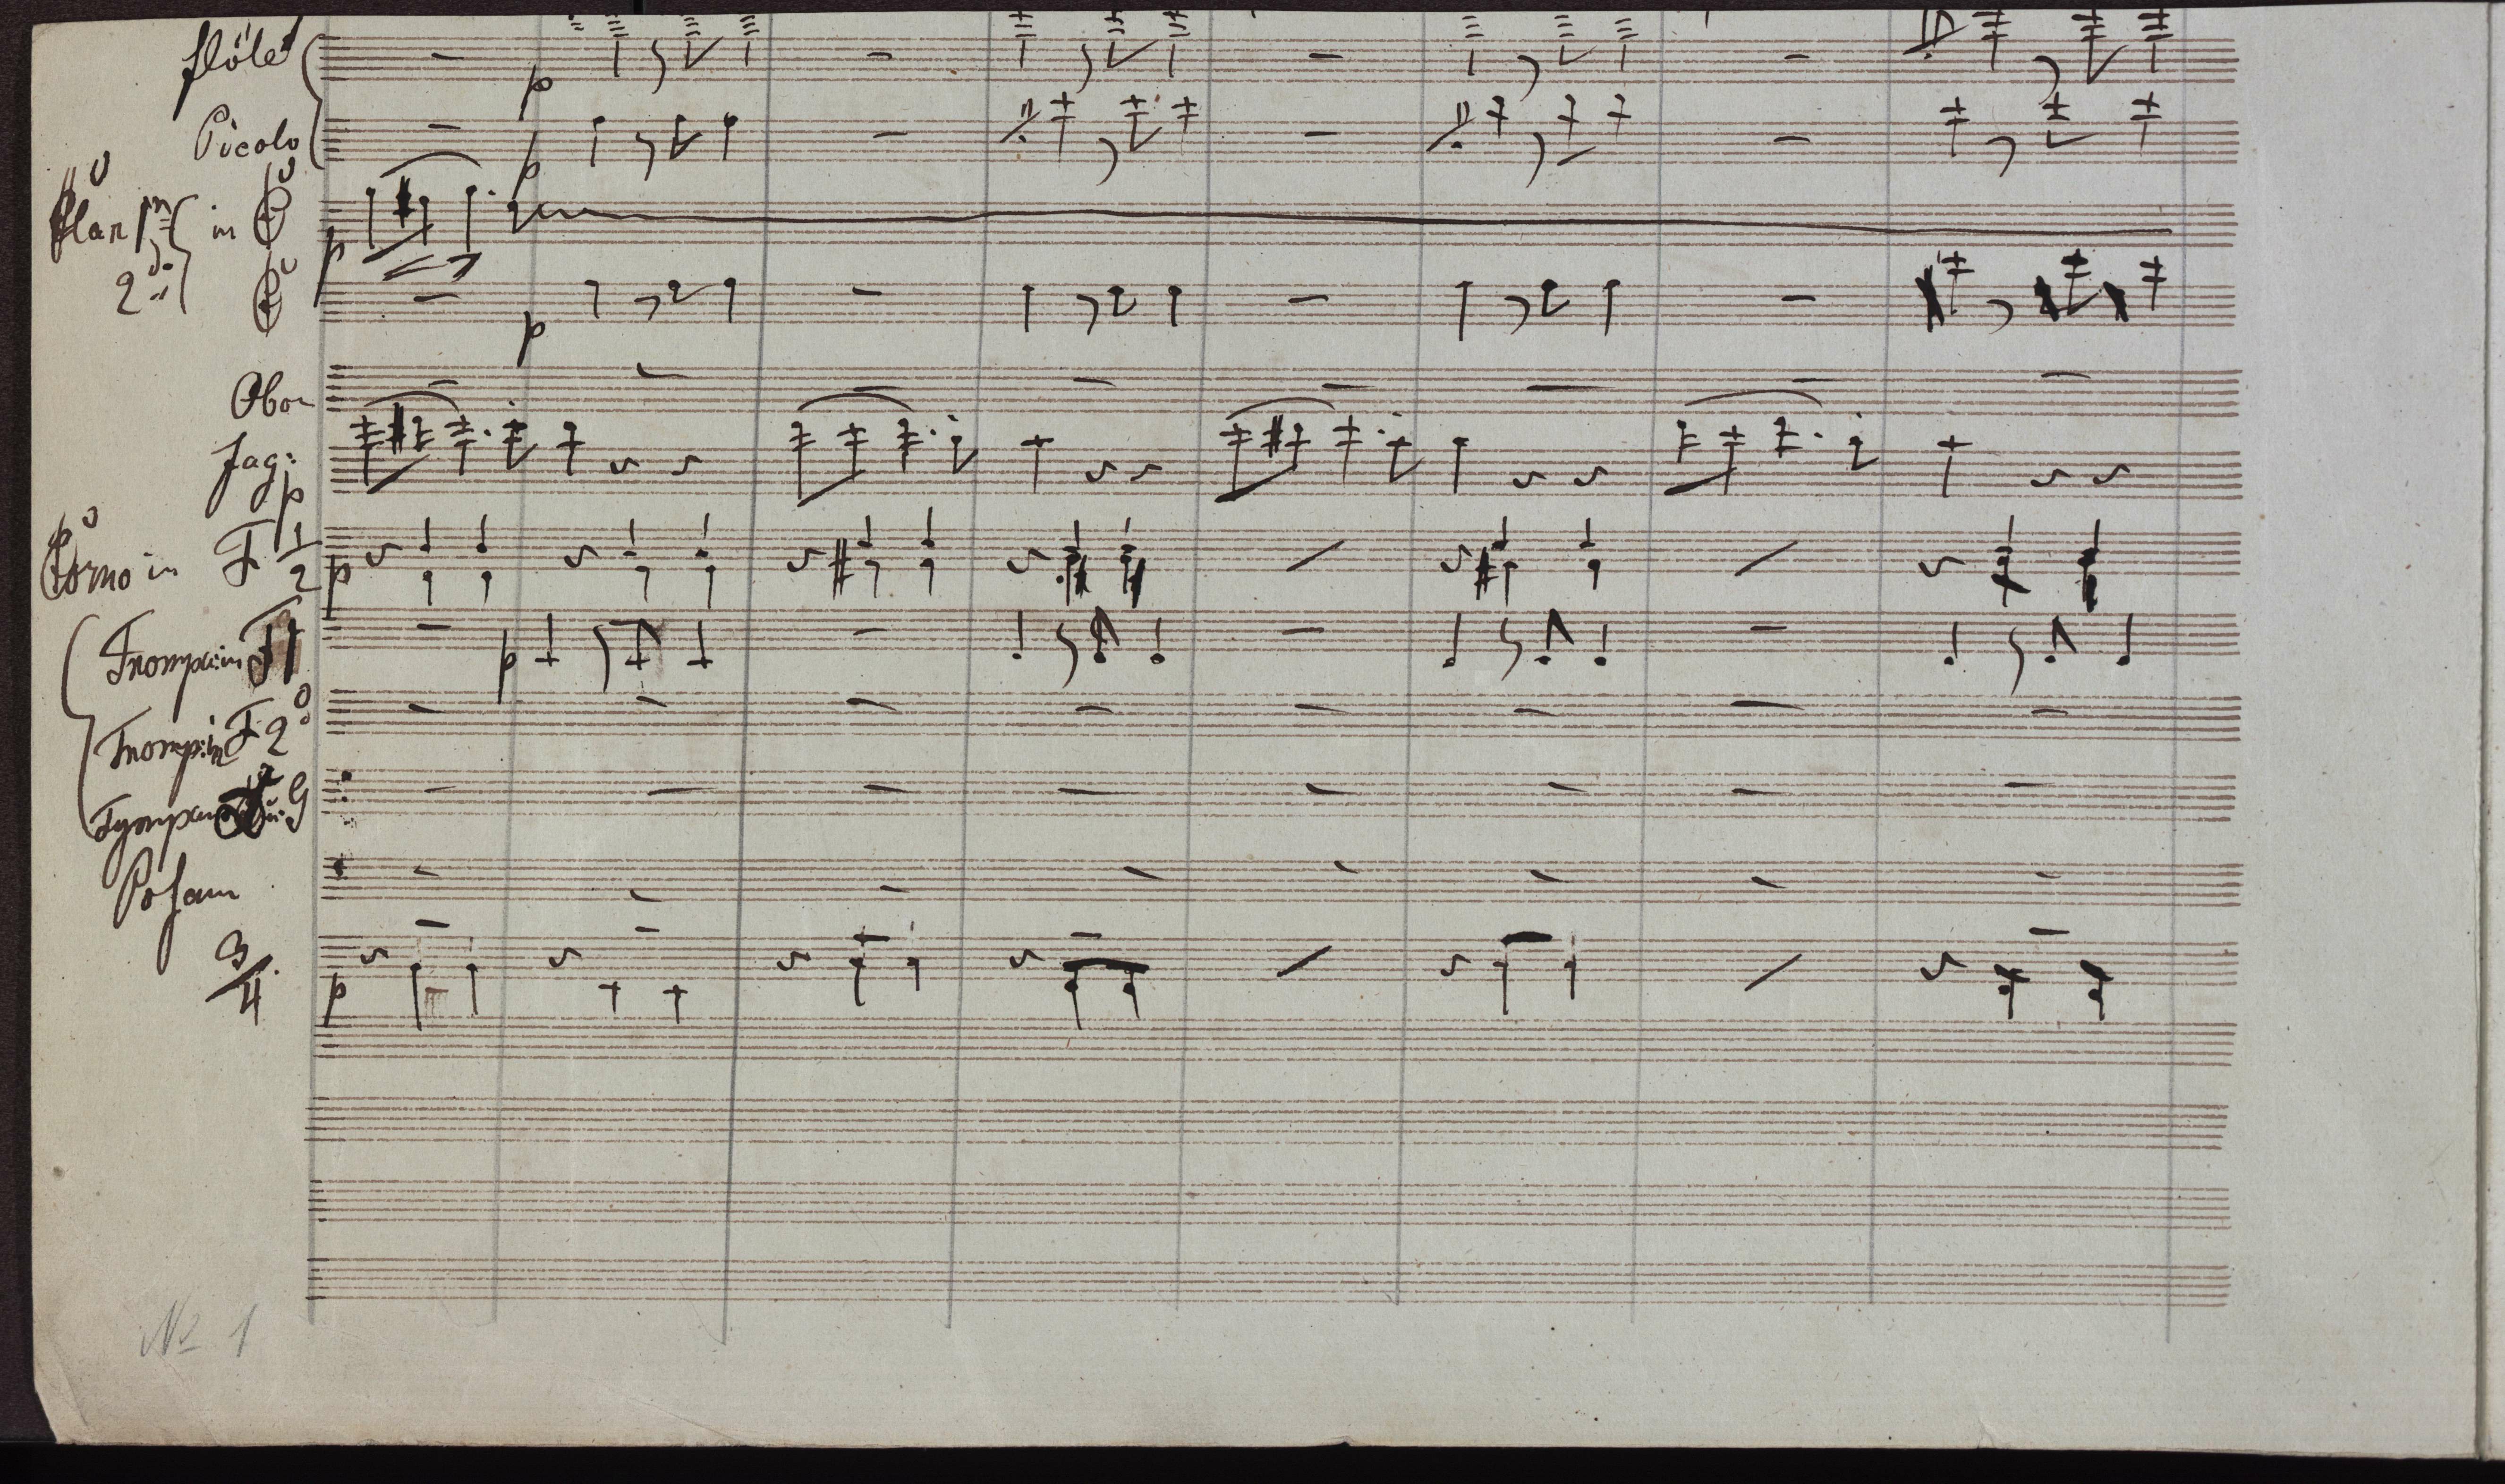 flöte
Picolo
Clar 1mo in C
2do C
Oboe
Fag:
p
Corno in F 1
2
Tromp: in F 1
Tromp: in F 2o
Tympan in G
Posaun
3/4
No 1